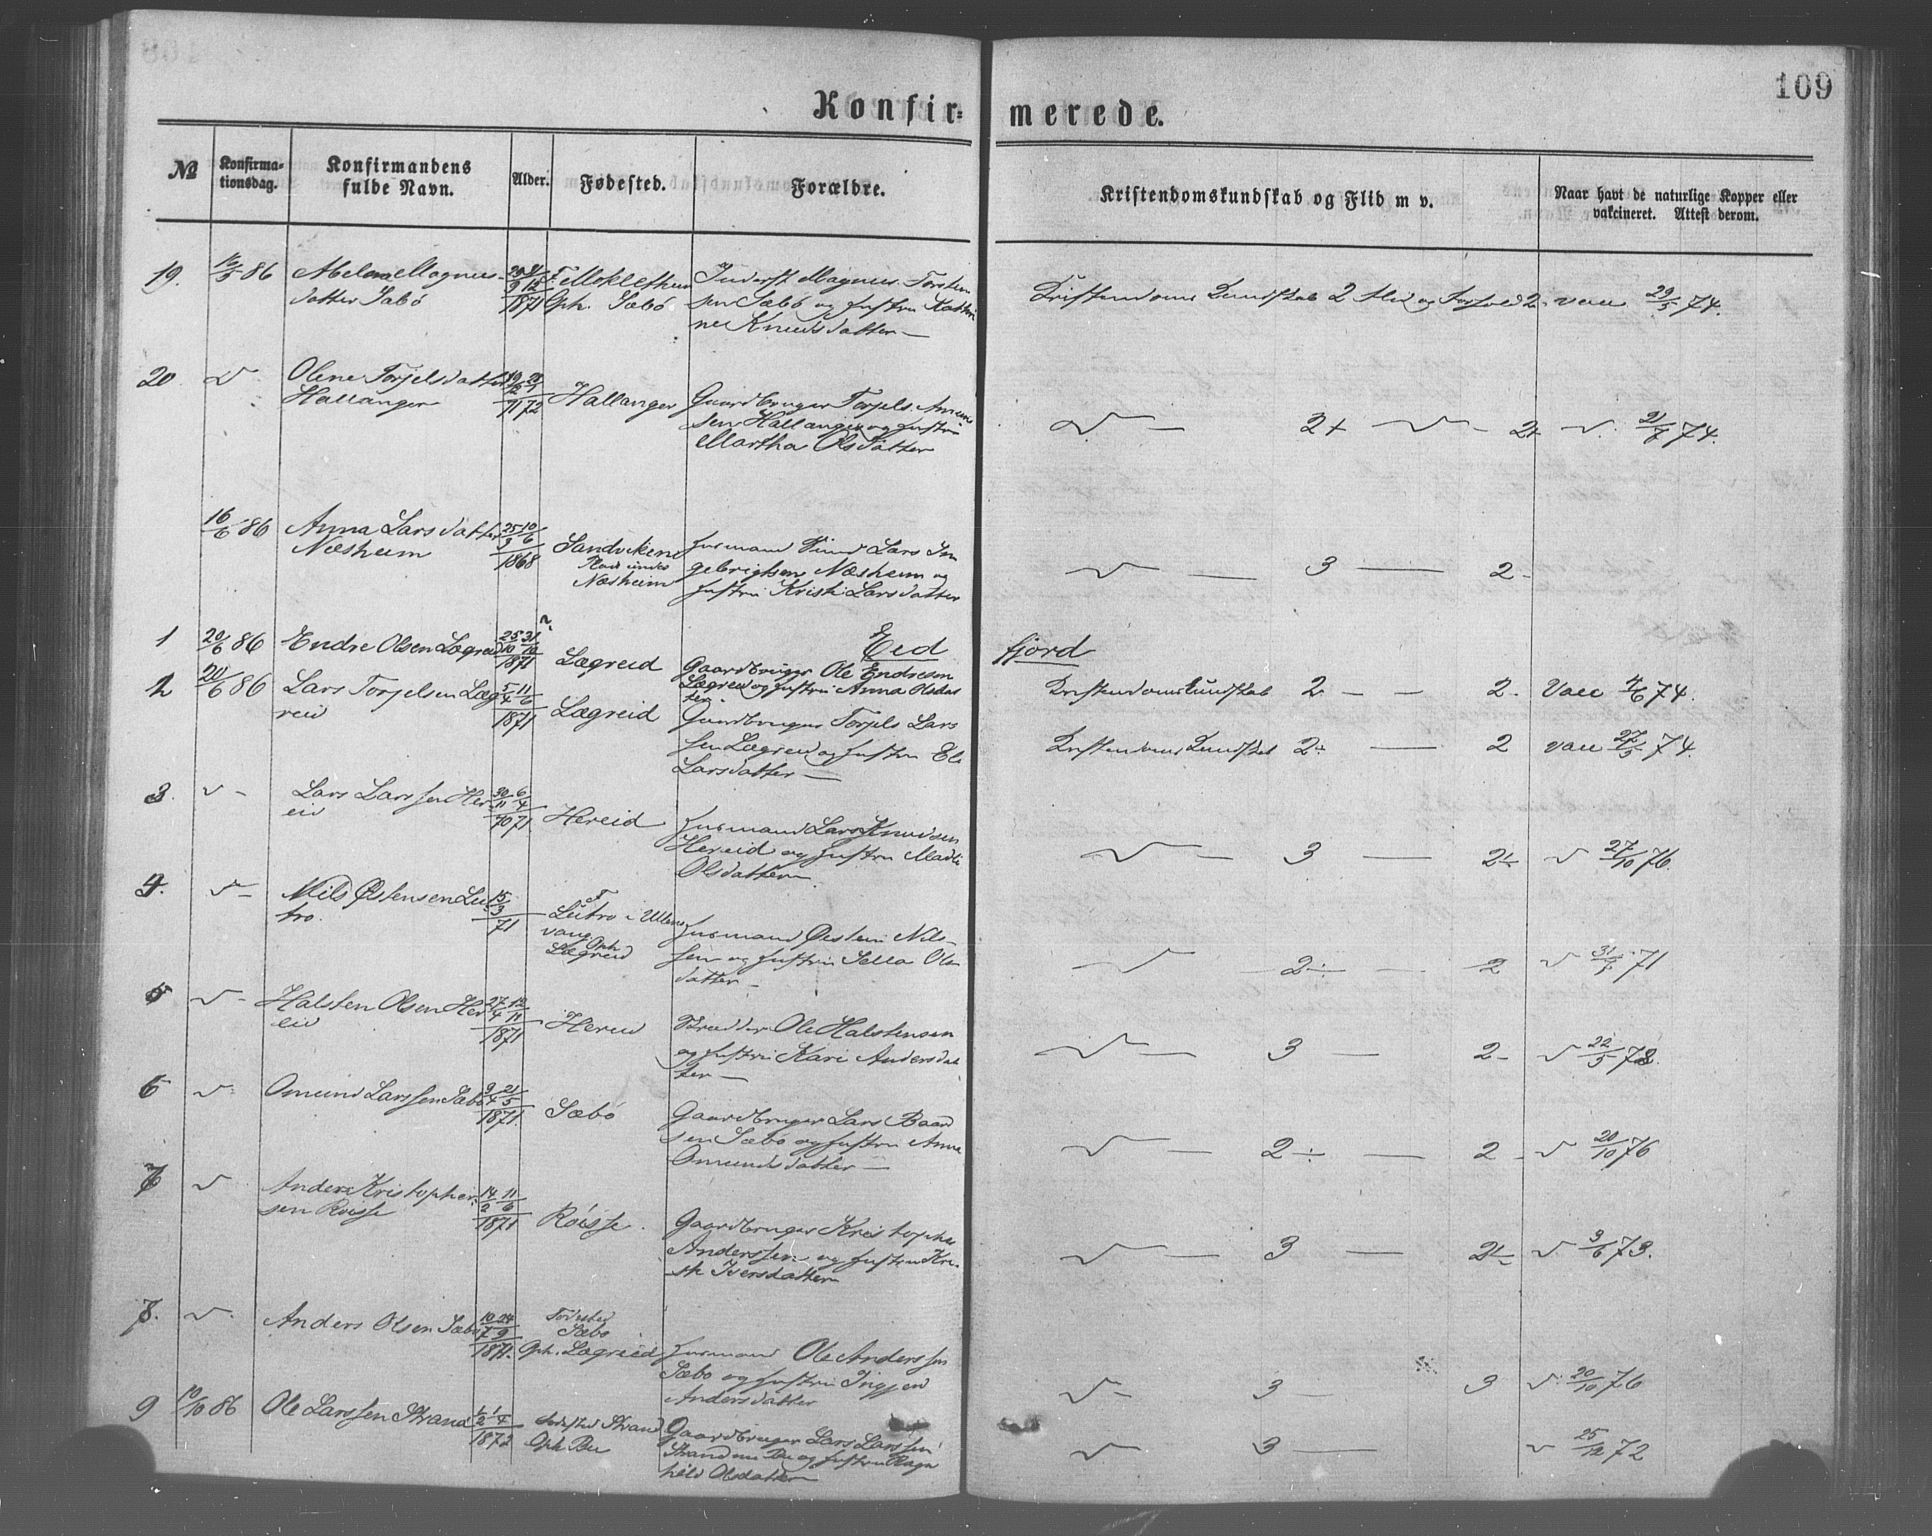 109
Konfir-
merede.
№
Konfirma-
tionsdag.
Konfirmandens
fulde Navn.
Alder.
Fødested.
Forældre.
Kristendomskundskab og Flid m v.
Naar havt de naturlige Kopper eller
vakcineret. Attest derom.
19. 86 Magnus-
datter Sæbø
1871
Oph. Sæbø
Inderst Magnus Torstein
sen Sæbø og hustru Kathri
ne Knudsdatter
Kristendoms Kundskab 2 Flid og Forhold 2. vacc 29/5 74.
20 Olene Torjelsdatter
Hallanger
71 72
Hallanger
Gaardbruger Torjels
sen Hallanger og hustru
Martha Olsdatter
2+ 2+ 74.
16/6 86 Anna Larsdatter
Næsheim
25/9 10/6
1868
Sandvikene
Plads under
Næsheim
Husmand Lars In
gebrigtsen Næsheim og
hustru Kristi Larsdatter
3 2-
Eid
fjord
1 20/6 86 Endre Olsen Lægreid
25/10 31/12
1871
Lægreid
Gaardbruger Ole Endresen
Lægreid og hustru Anna Olsdat
ter.
Kristendomskundskab 2 - - 2- Vacc 4/6 74.
2 20/6 86 Lars Torjelsen Læg
reid
5/4 11/6
1871
Lægreid
Gaardbruger Torjels Lars
sen Lægreid og hustru Eli
Larsdatter
Kristendoms Kundskab 2÷ 2 vacc 27/5 74.
3. Lars Larssen Her-
eid
30/11 6/4
70 71
Hereid
Husmand Lars Knudsen
Hereid og hustru
Olsdatter
3 2÷ 27/10 76.
4. Nils Østensen Lu
tro.
15/3
71
F
Lutro i Ullens
vang.
Oph
Lægreid
Husmand Østein Nils-
sen og hustru Sella Ols
datter
2÷ 2 71
5 Halsten Olsen Her
eid
27/4 12/11
1871
Hereid
Ole Halstensen
og hustru Kari Andersdat
ter
3 2- 22/5
6 Omund Larssen Sæbø
9/4 21/5
1871.
Sæbø
Gaardbruger Lars Baard
sen Sæbø og hustru Anna
Omundsdatter
2÷ 2 - 20/10 76
7 Anders Kristopher-
sen Røisse
14/2 11/6
1871
Røisse.
Gaardbruger Kristopher
Anderssen og hustru Kri
sti Iversdatter
3 2÷ 3/6 73.
8. Anders Olsen Sæbø
10/7 24/9
1871.
Fødested
Sæbø
Oph. Lægreid
Husmand Ole Anderssen
Sæbø og hustru Ingjerd
Andersdatter
3 3 20/10 76
9 10/10 86 Ole Larssen Strand
1872
Fødested Strand
Oph Bu
Gaardbruger Lars Larssen
Strand nu Bu og hustru Ragn
hild Olsdatter
3 25/12 72